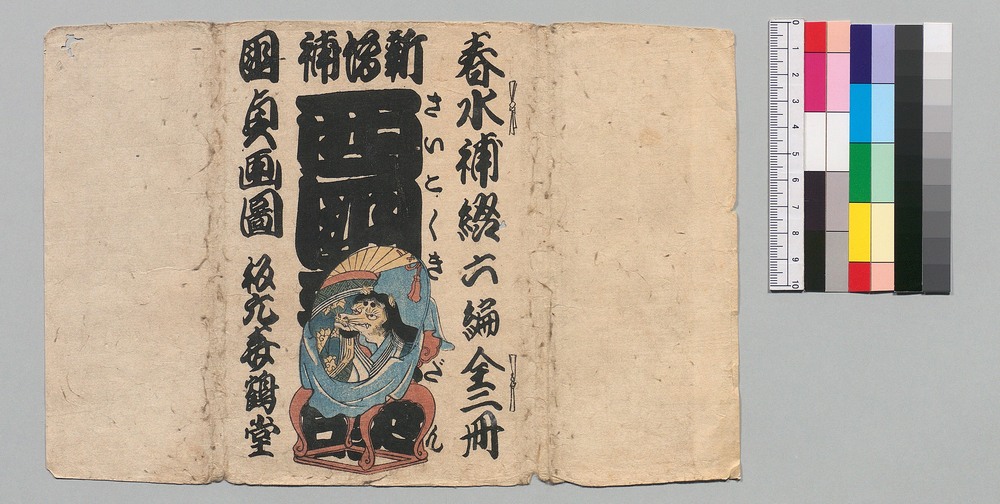 春水補綴六編全二冊
新増補
さいこくきだん
西國
國貞画圖 板元喜鶴堂
0 1 2 3 4 5 6 7 8 9 10